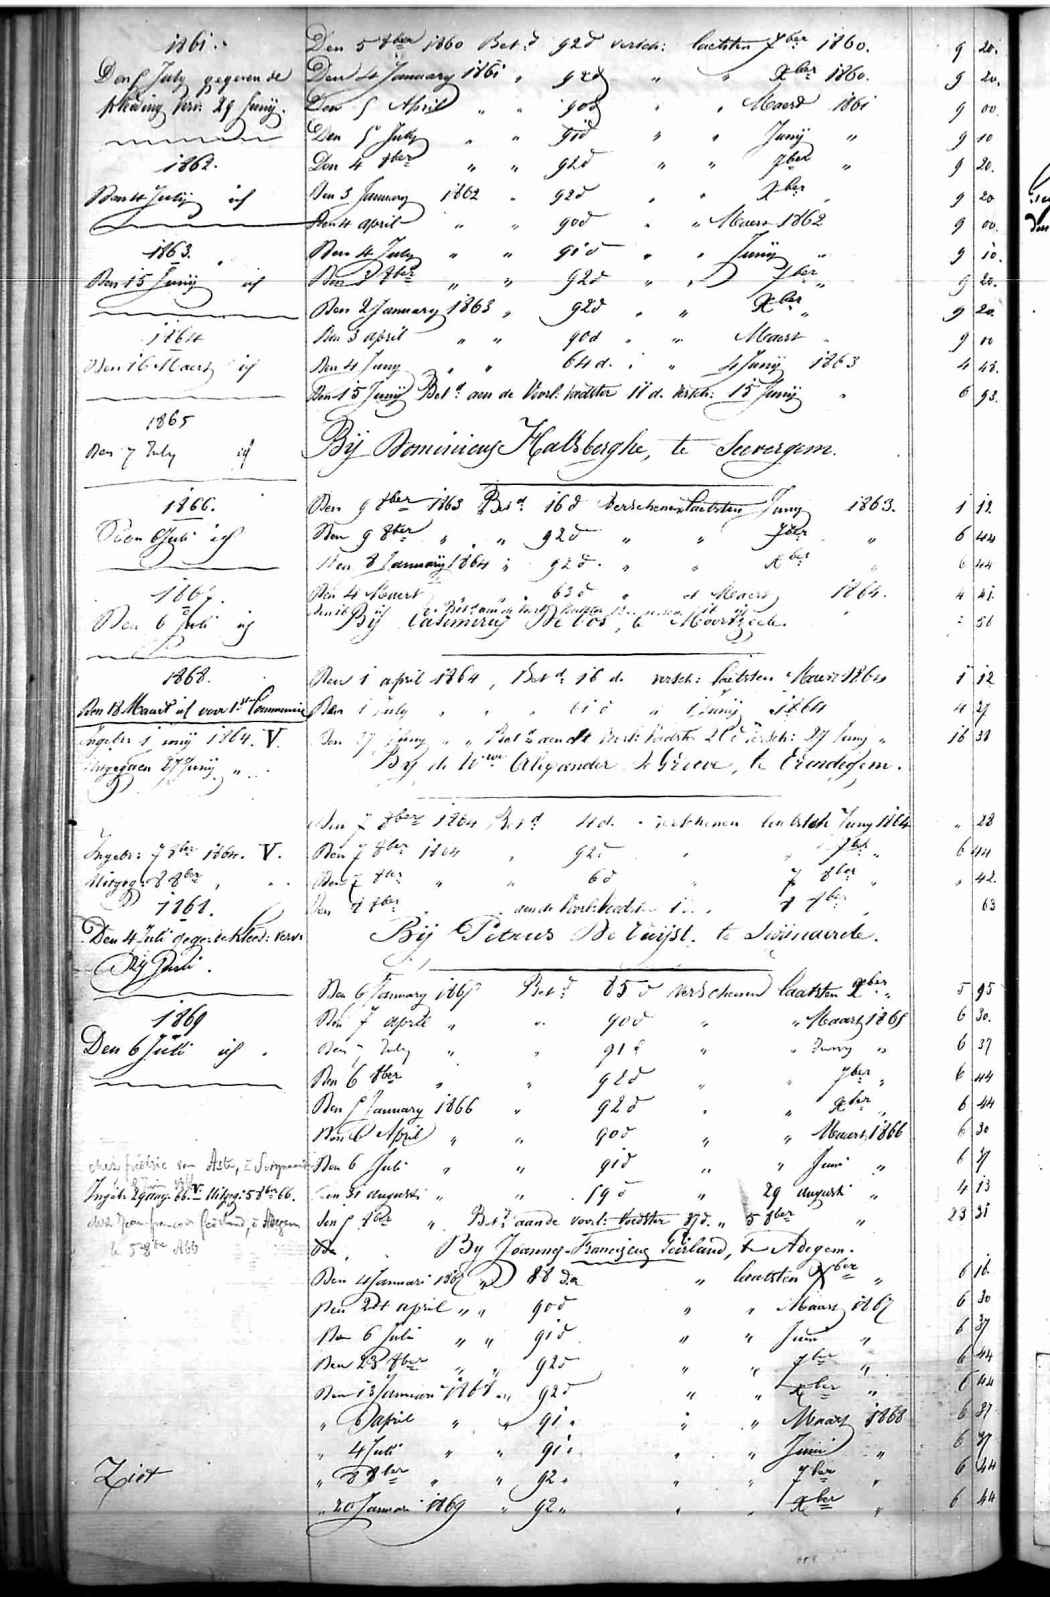 1861.
Den 5 July gegeven de
kleding ver: 29 Junij.
1862.
Den 4 Julij id
1863.
Den 15 Junij id
1864
Den 16 Maert id
1865
Den 7 July id
1866.
Den 6 Juli id
1867.
Den 6 Juli id
1868.
Den 18 Maart id voor 1ste Communie
Ingebr 1 april 1864. V.
Uitgegaen 27 Junij "
Ingebr: 7 8ber 1864. V.
Uitgeg: 8 8ber " "
1868.
Den 4 Juli gege: de kleed: vers:
Juli.
1869
Den 6 Juli id.
Ingebr 29 aug: 66. V. Uitgeg: 5 8ber 66.
chez Jean francois Geirland, à Adegem
le 5 8bre
Ziet
Den 5 8ber 1860 Bet.d 92d versch: laetsten 7ber 1860. 9 20.
Den 4 January 1861 " 92d " " Xber 1860. 9 20.
Den 5 April " " 90d " " Maert 1861 9 00
Den 5 July " " 91d " " Junij " 9 10
Den 4 8ber " " 92d " " 7ber " 9 20.
Den 3 January 1862 " 92d " " Xber " 9 20
Den 4 april " " 90d " " Maert 1862 9 00.
Den 4 July " " 91d " " Junij " 9 10.
Den 3 8ber " " 92d " " 7ber " 9 20.
Den 2 January 1863 " 92d " " Xber " 9 20
Den 3 april " " 90d " " Maert 9
Den 4 Juny " " 64d. " " 4 Junij 1863 4 48.
Den 15 Junij Bet.d aen de Voorl: voedster 11 d. versch: 15 Junij " 6 93.
Bij Dominicus Halsberghe, te Seevergem.
Den 9 8ber 1863 Bet.d 16d verschenen laetsten Juny 1863. 1 12
Den 9 8ber " " 92d " " 7ber " 6 44
Den 8 January 1864 " 92d. " " Xber " 6 44
Den 4 Maert " 63d " 4 Maert 1864. 4 41.
Bij Casimirus De Vos, te Moortzeele. 56
Den 1 april 1864, Bet.d 16 d. versch: laetsten Maert 1864 1 12
Den 1 July " " 61d " 1 Junij 1864 4 27
Den 27 Juny " " Bet.d aen de Voorl: Voedster versch: 27 Juny " 16 38
Bij de Wwe Alexander De Grieve, te Erondegem.
Den 7 8ber 1864 Bet.d 4d. verschenen laetsten Juny 1864 " 28
Den 7 8ber 1864 " 92d " " 7ber " 6 44
Den 7 8ber " " 6d " 7 8ber " " 42.
Den 7 8ber aen de Voorl: Voedster 7 8ber 63
Bij Petrus De Cuijst. te Swijnaerde.
Den 6 January 1865 Bet.d 85d verschenen laetsten Xber " 5 95
Den 7 april " " 90d " " Maert 1865 6 30.
Den 7 July " " 91d " " Juny " 6 37
Den 6 8ber " " 92d " " 7ber " 6 44
Den 5 January 1866 " 92d " " Xber " 6 44
Den 6 April " " 90d " " Maert 1866 6 30
Den 6 Juli " " 91d " " Juni " 6 37
Den 31 augusti " " 59d " 29 augusti " 4 13
Den 5 8ber " Bet.d aan de voorl: voedster 37d. " 5 8ber " 23 31
By Joannes-Franciscus Geirland, te Adegem.
Den 4 Januari 1867 " 88 da " laetsten Xber " 6 16
Den 24 april " " 90d " " Maart 1867 6 30
Den 6 Juli " " 91d " " Juni " 6 37
Den 23 8ber " " 92d " " 7ber " 6 44
Den 13 Januari 1868 " 92d " " Xber " 6 44
" 6 april " " 91 " " " Maart 1868 6 37
" 4 Juli " " 91 " " " Juni " 6 37
" 8 8ber " " 92 " " " 7ber " 6 44
" 20 Januari 1869 " 92 " " " Xber " 6 44